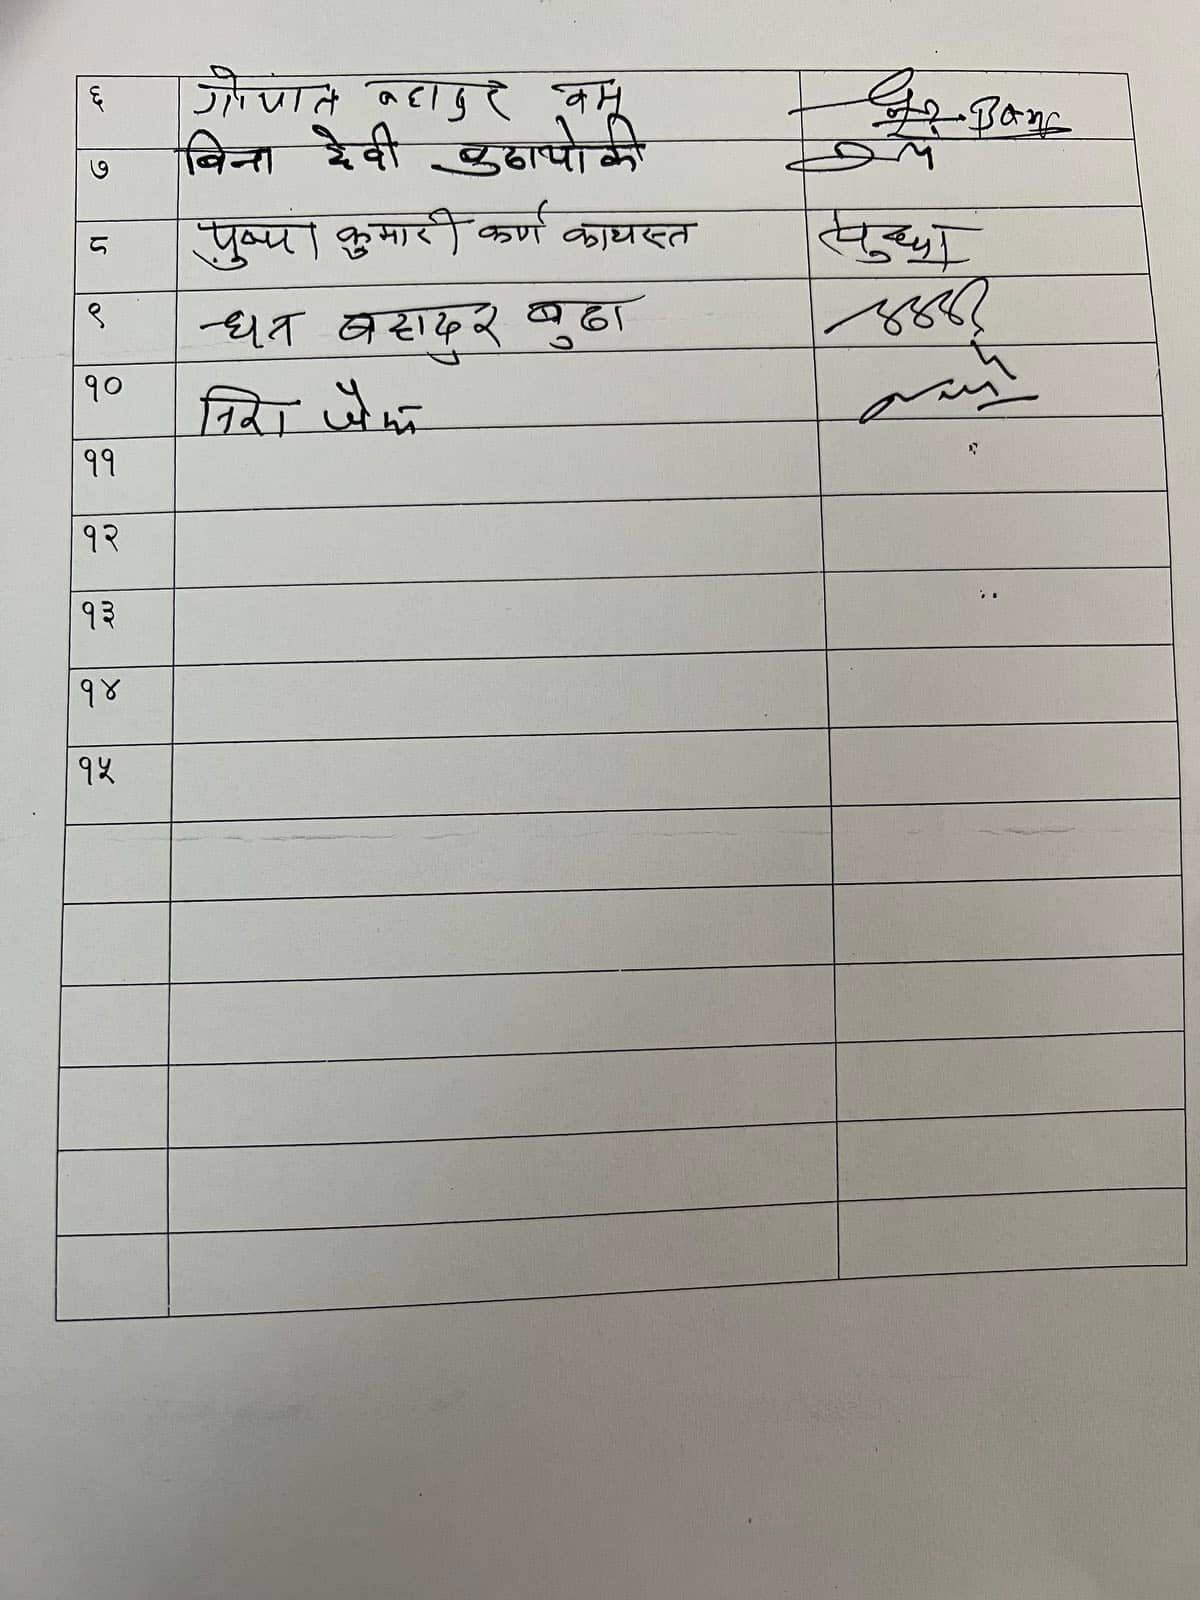 ६ गोपाल बहादुर बम G. Bam
७ बिना देवी बुढाथोकी
८ पुष्पा कुमारी कर्ण कायस्त पुष्पा
९ धन बहादुर बुढा
१०
११
१२
१३
१४
१५